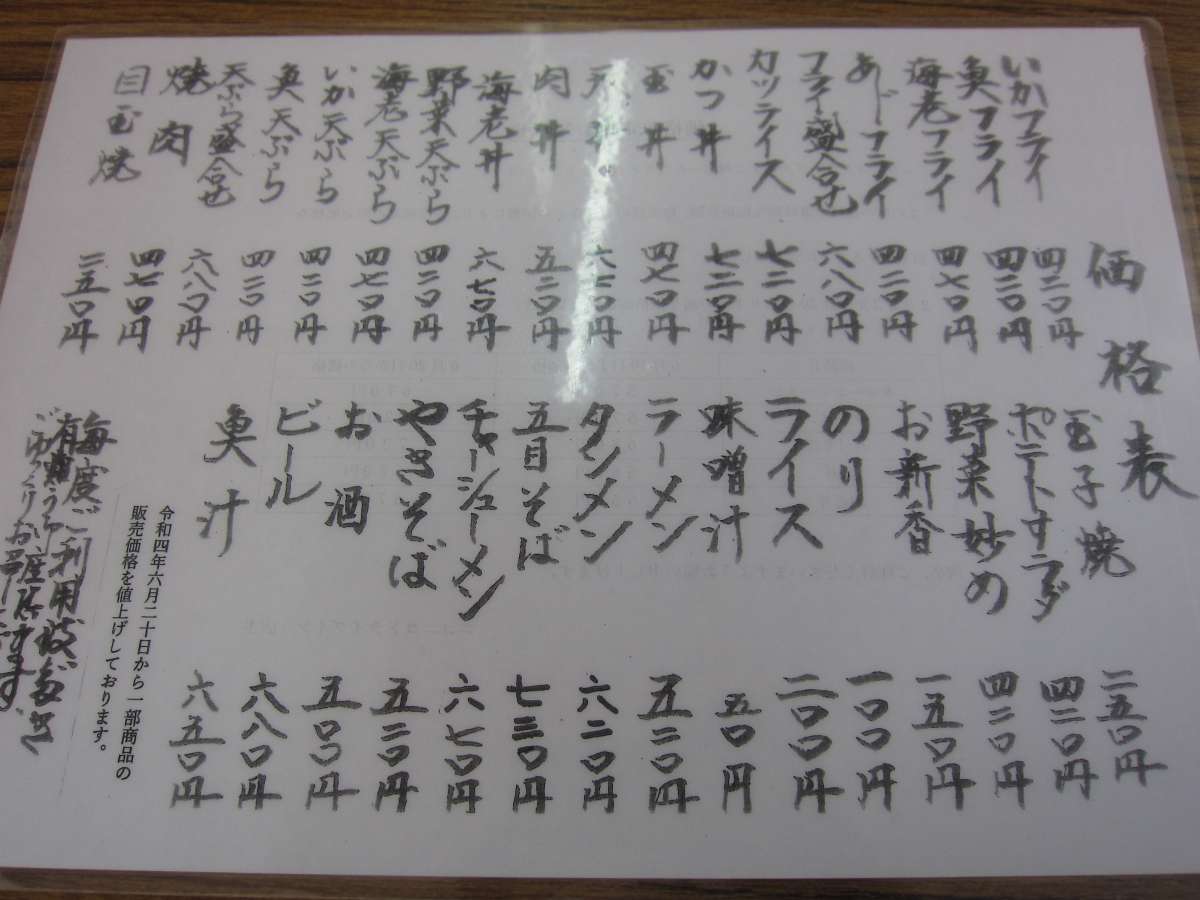 価格表
いかフライ 四二〇円
魚フライ 四二〇円
海老フライ 四七〇円
あじフライ 四二〇円
フライ盛合せ 六八〇円
カツライス 七二〇円
かつ丼 七二〇円
玉丼 四七〇円
天丼 六二〇円
肉丼 五二〇円
海老丼 六七〇円
野菜天ぷら 四二〇円
海老天ぷら 四七〇円
いか天ぷら 四二〇円
魚天ぷら 四二〇円
天ぷら盛合せ 六八〇円
焼肉 四七〇円
目玉焼 二五〇円
玉子焼 二五〇円
ポテトサラダ 四二〇円
野菜妙め 四二〇円
お新香 一五〇円
のり 一〇〇円
ライス 二〇〇円
味噌汁 五〇円
ラーメン 五二〇円
タンメン 六二〇円
五目そば 七三〇円
チャーシューメン 六七〇円
やきそば 五二〇円
お酒 五〇〇円
ビール 六八〇円
魚汁 六五〇円
令和四年六月二十日から一部商品の
販売価格を値上げしております。
毎度ご利用頂き
ごゆっくりお